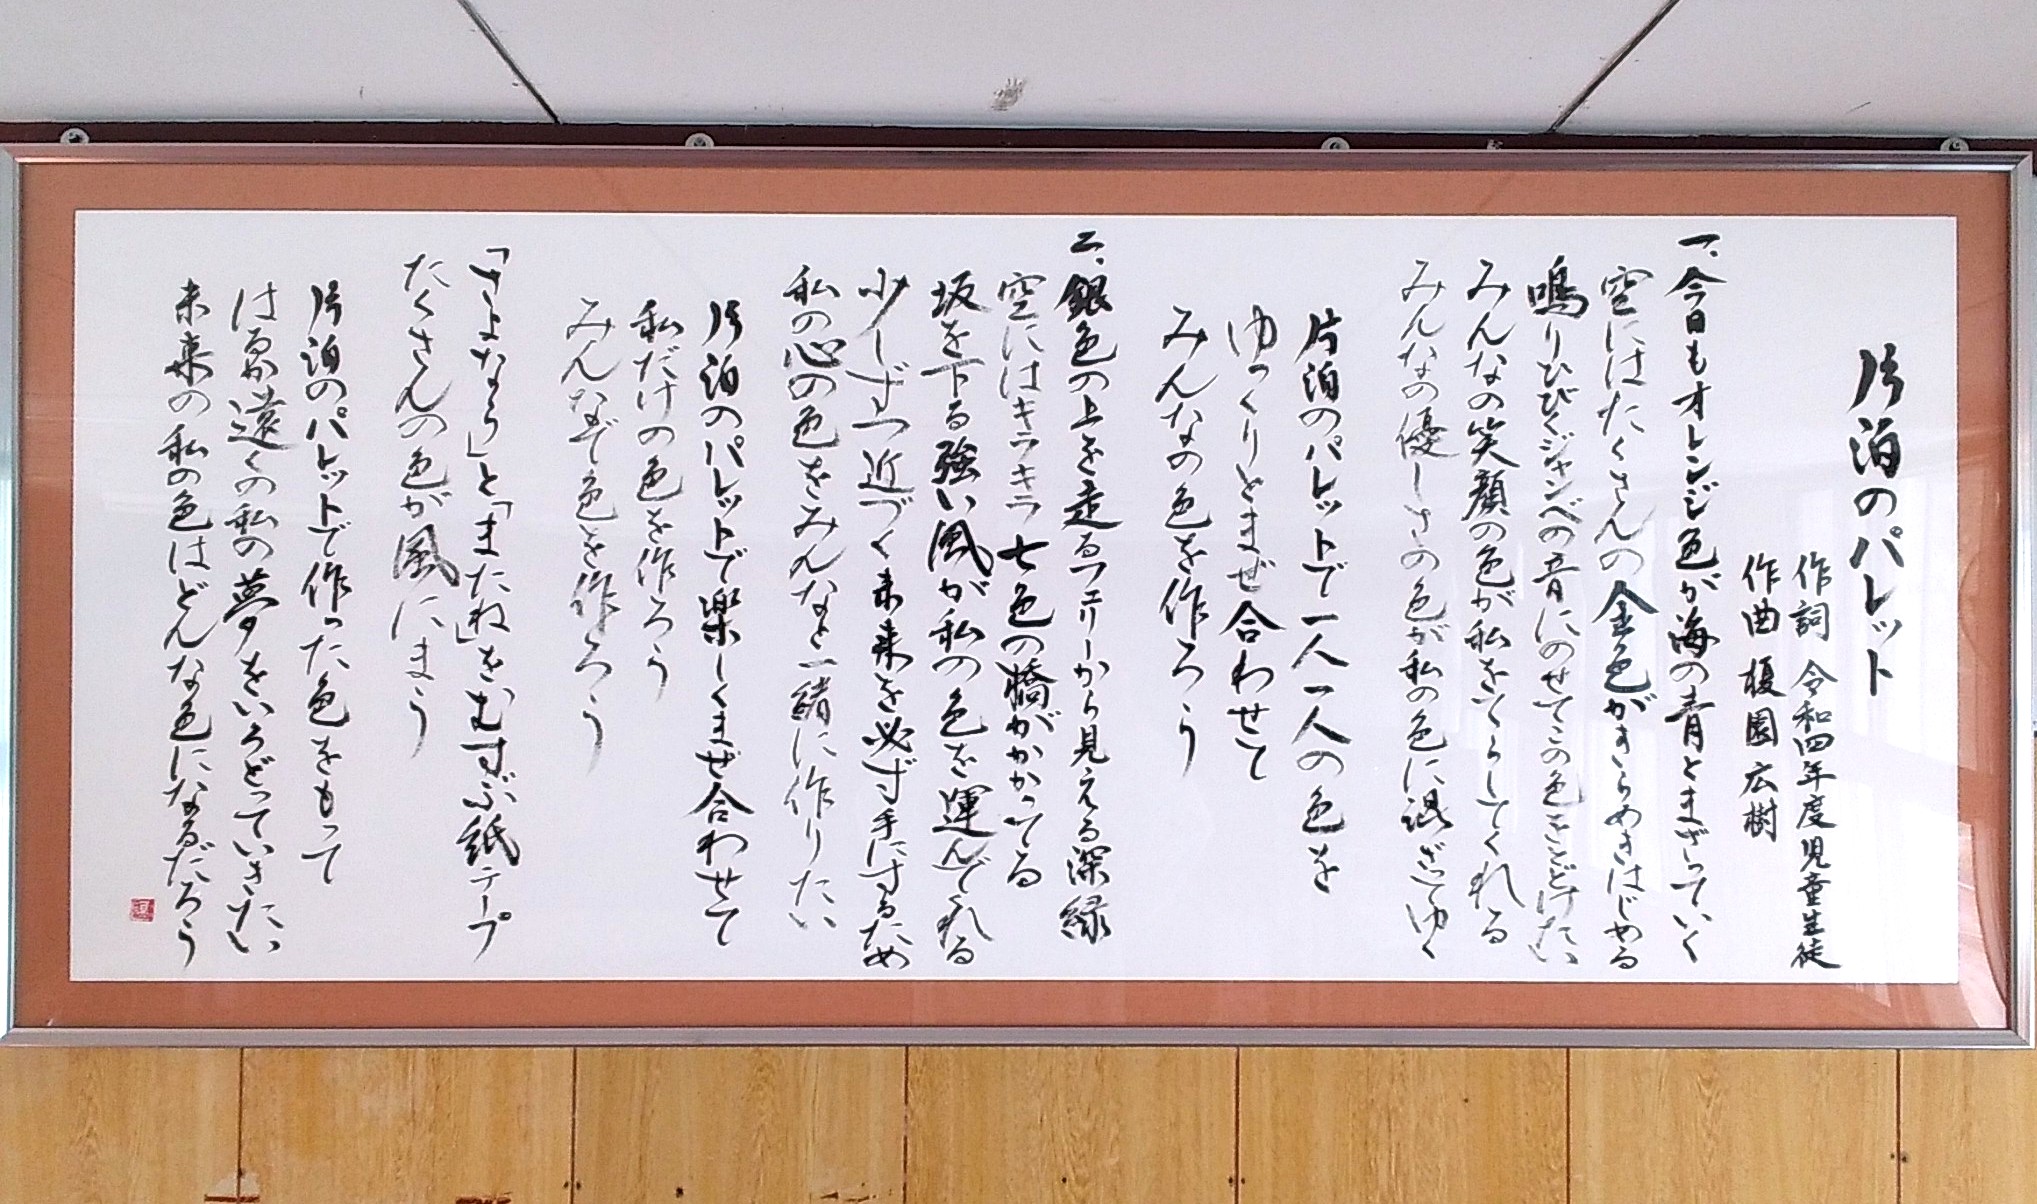 片泊のパレット
作詞 令和四年度児童生徒
作曲 榎園広樹
一、今日もオレンジ色が海の青とまざっていく
空にはたくさんの金色がきらめきはじめる
鳴りひびくジャンベの音にのせてこの色をとどけたい
みんなの笑顔の色が私をてらしてくれる
みんなの優しさの色が私の色に混ざってゆく
片泊のパレットで一人一人の色を
ゆっくりとまぜ合わせて
みんなの色を作ろう
二、銀色の上を走るフェリーから見える深緑
空にはキラキラ七色の橋がかかってる
坂を下る強い風が私の色を運んでくれる
少しずつ近づく未来を必ず手にするため
私の心の色をみんなと一緒に作りたい
片泊のパレットで楽しくまぜ合わせて
私だけの色を作ろう
みんなで色を作ろう
「さよなら」と「またね」をむすぶ紙テープ
たくさんの色が風にまう
片泊のパレットで作った色をもって
はるか遠くの私の夢をいろどっていきたい
未来の私の色はどんな色になるだろう